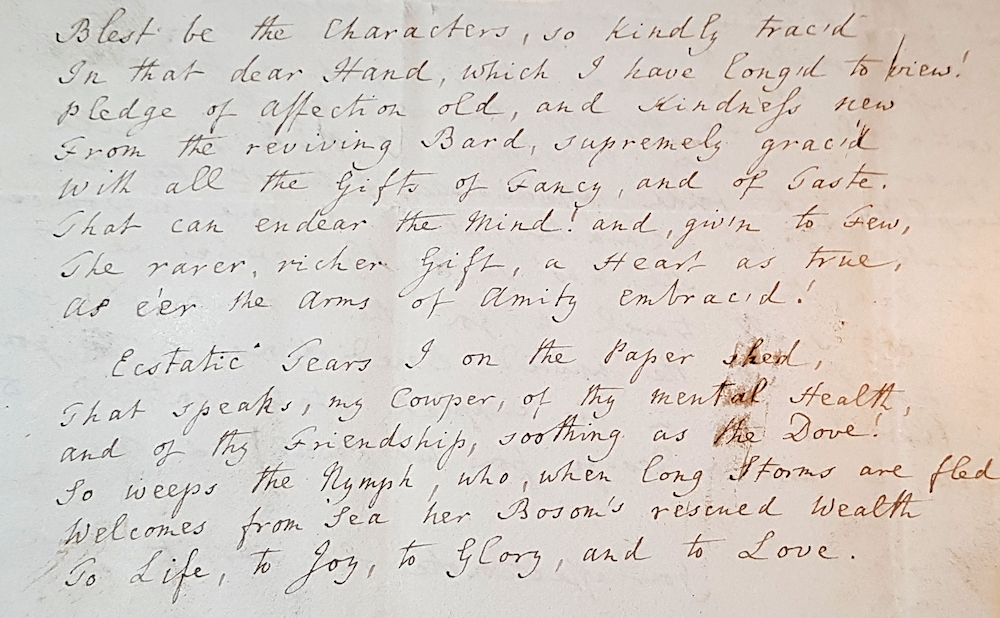 Blest be the Characters, so kindly trac'd
In that dear Hand, which I have long'd to view!
Pledge of Affection old, and Kindneſs new
From the reviving Bard, supremely grac'd
With all the Gifts of Fancy, and of Taste.
That can endear the Mind! and, giv'n to Few,
The rarer, richer Gift, a Heart as true,
As e'er the Arms of Amity embrac'd!
Ecstatic Tears I on the Paper shed,
That speaks, my Cowper, of thy mental Health,
and of thy Friendship, soothing as the Dove!
So weeps the Nymph, who, when long Storms are fled
Welcomes from Sea her Bosom's rescued Wealth
To Life, to Joy, to Glory, and to Love.